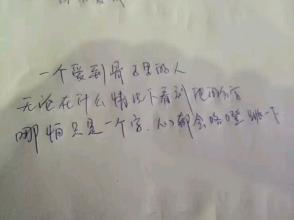 一个爱到骨子里的人
无论在什么情况下看到他的名字
哪怕只是一个字,心都会咯噔跳一下